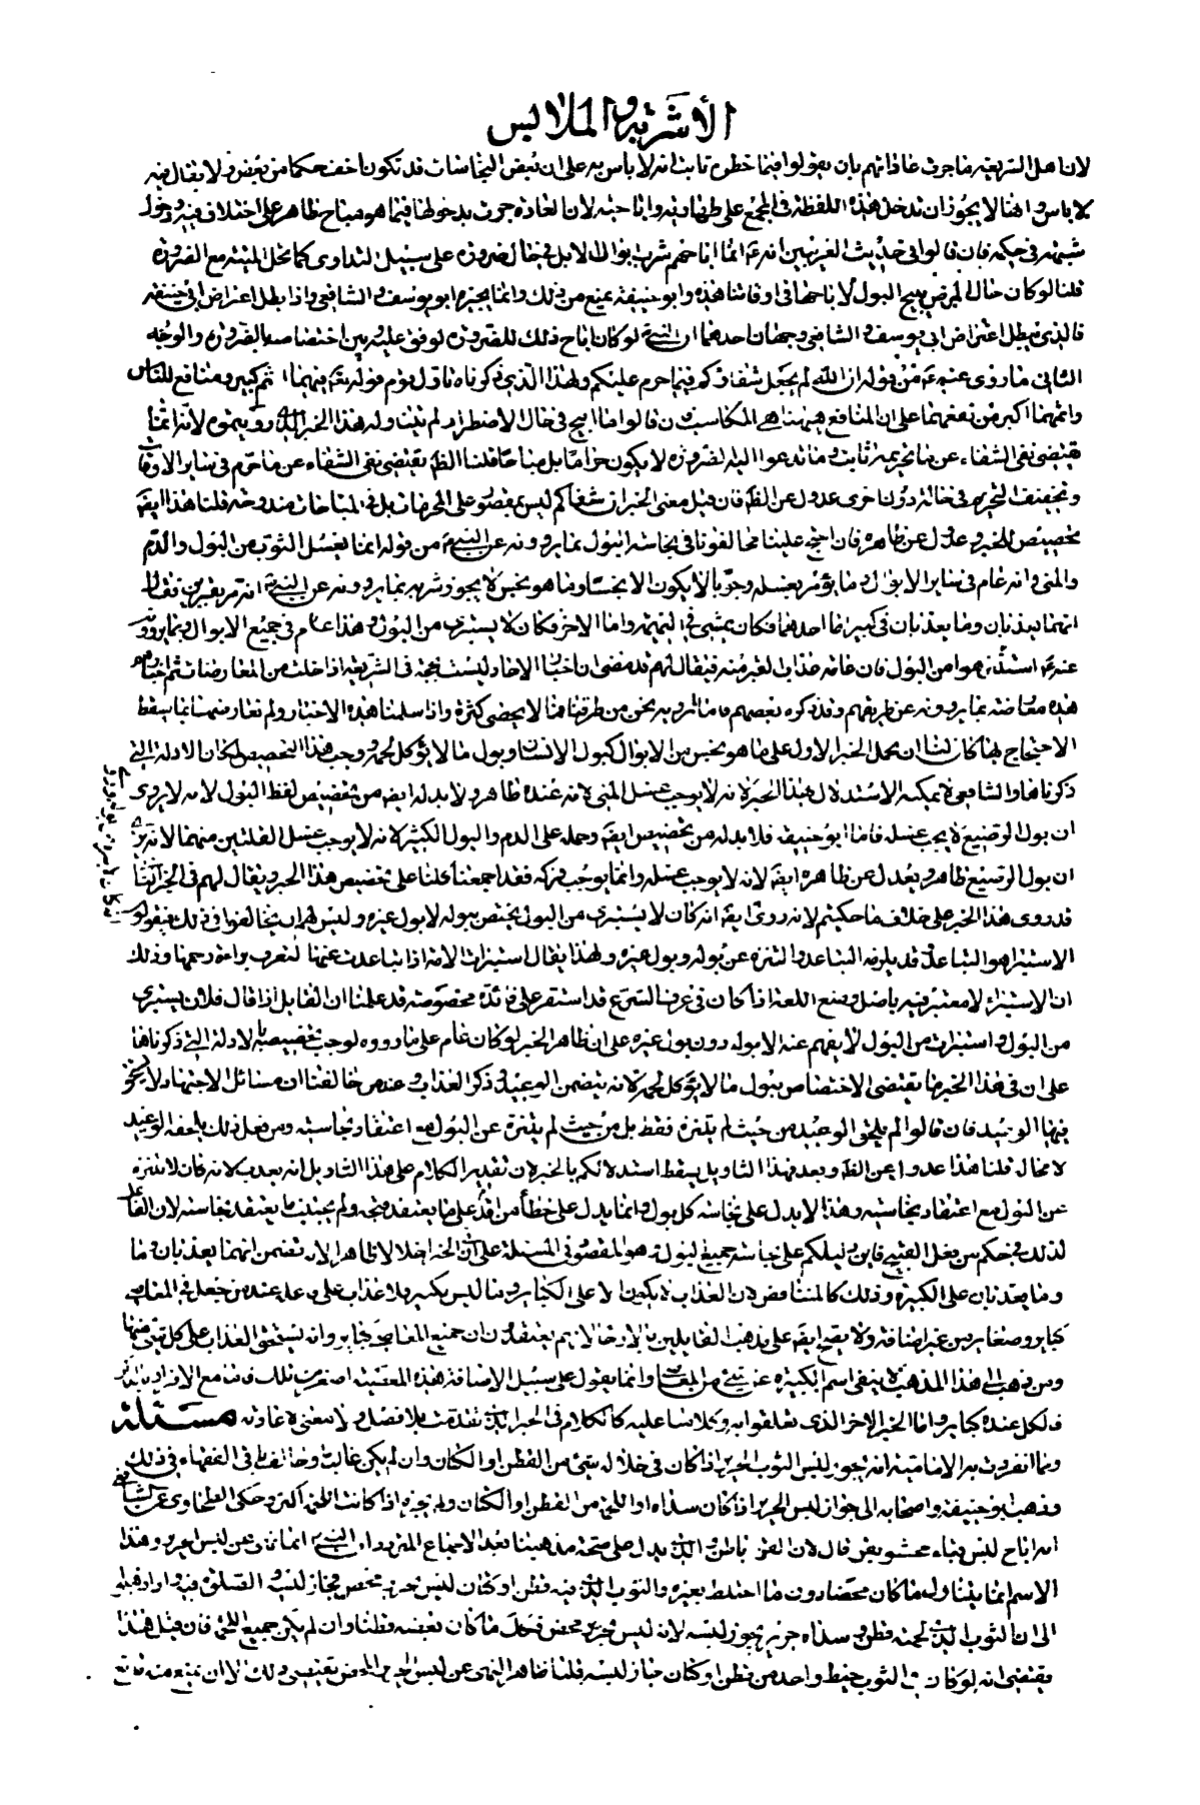 الأشربة والملابس
لان اهل الشريعة ما جرت عاداتهم بان يقولوا فيما حظره ثابت انه لا باس به على ان بعض النجاسات قد تكون اخف حكما من بعض ولا يقال فيه
لا باس واهنا لا يجوز ان تدخل هذه اللفظة في المجمع على طهارته واباحته لان العادة جرت بدخولها فيما هو مباح ظاهر على اختلاف فيه ودخول
شبهة في حكمه فان قالوا في حديث العرنيين انه ع انما اباحهم شرب ابوال الابل في حال ضرورة على سبيل التداوى كما تحل الميتة مع الضرورة
قلنا لو كان حال المرض يبيح البول لاباحها في اوقاتنا هذه وابو حنيفة يمنع من ذلك وانما يجيزه ابو يوسف والشافعي واذا بطل اعتراض ابى حنيفة
فالذي يبطل اعتراض ابى يوسف والشافعي وجهان احدهما ان النبي ع لو كان اباح ذلك للضرورة لوقف عليه وبين اختصاصه بالضرورة والوجه
الثانى ما روى عنه ع من قوله ان الله لم يجعل شفاءكم فيما حرم عليكم ولهذا الذي ذكرناه تاول قوم قوله تع فيهما اثم كبير ومنافع للناس
واثمهما اكبر من نفعهما على ان المنافع هيهنا هي المكاسب فان قالوا ما ابيح في حال الاضطرار لم يتناوله هذا الخبر الذي رويتموه لانه انما
يقتضى نفى الشفاء عن ما تحريمه ثابت وما تدعوا اليه الضرورة لا يكون حراما بل مباحا قلنا الظ يقتضى نفى الشفاء عن ما حرم في ساير الاوقات
وتخفيف التحريم في حالة دون اخرى عدول عن الظ فان قيل معنى الخبر ان شفاكم ليس بمقصور على المحرمات بل في المباحات مندوحة قلنا هذا ايضا
تخصيص للخبر وعدول عن ظاهره فان احتج علينا مخالفونا في نجاسة البول بما يروونه عن النبي ع من قوله انما يغسل الثوب من البول والدم
والمنى وانه عام في ساير الابوال وما يؤمر بغسله وجوبا لا يكون الا نجسا وما هو نجس لا يجوز شربه بما يروونه عن النبي ع انه مر بقبرين فقال
انهما يعذبان وما يعذبان في كبير اما احدهما فكان يمشى في النميمة واما الاخر فكان لا يستبرى من البول وهذا عام في جميع الابوال وبما يروونه
عنه ع استنزهوا من البول فان عامة عذاب القبر منه فيقال لهم قد مضى ان اخبار الاحاد ليست بحجة في الشريعة اذا خلت من المعارضات ثم اخبارهم
هذه معارضة بما يروونه عن طريقهم وقد ذكره بعضهم فاما ترويه نحن من طرقنا فما لا يحصى كثرة واذا سلمنا هذه الاخبار ولم نعارضها بما يسقط
الاحتجاج بها كان لنا ان نحمل الخبر الاول على ما هو نجس من الابوال كبول الانسان وبول ما لا يؤكل لحمه ووجب هذا التخصيص لمكان الادلة التي
ذكرناها والشافعي لا يمكنه الاستدلال بهذا الخبر لانه لا يوجب غسل المنى لانه عنده طاهر ولا بد له ايض من تخصيص لفظ البول لانه لا يروى
ان بول الرضيع لا يجب غسله فاما ابو حنيفة فلا بد له من تخصيص ايض وحمله على الدم والبول الكثير لانه لا يوجب غسل القليلين منهما لانه يرى
ان بول الرضيع طاهر ويعدل عن ظاهره ايض لانه لا يوجب غسله وانما يوجب فركه فقد اجمعنا كلنا على تخصيص هذا الخبر ويقال لهم في الخبر الثانى
قد روى هذا الخبر على خلاف ما حكيتم لانه روى ايض انه كان لا يستبرى من البول يختص ببوله لا بول غيره وليس لهم ان يخالفوا في ذلك فيقولوا
الاستبراء هو التباعد قد يلزمه التباعد والتنزه عن بوله وبول غيره ولهذا يقال استبرات الامة اذا تباعدت عنها لتعرف براءة رحمها وذلك
ان الاستبراء لا معتبر فيه باصل وضع اللغة اذا كان في عرف الشرع قد استقر على فائدة مخصوصة قد علمنا ان القايل اذا قال فلان يستبرى
من البول واستبرات من البول لا يفهم عنه الا بوله دون بول غيره على ان ظاهر الخبر لو كان عام على ما رووه لوجب تخصيصه بالادلة التي ذكرناها
على ان في هذا الخبر ما يقتضى الاختصاص ببول ما لا يؤكل لحمه لانه يتضمن الوعيد وذكر العذاب وعند من خالفنا ان مسائل الاجتهاد لا يستحق
فيها الوعيد فان قالوا لم يلحق الوعيد من حيث لم يتنزه فقط بل من حيث لم يتنزه عن البول مع اعتقاد نجاسته ومن فعل ذلك يلحقه الوعيد
لا محال قلنا هذا عدول عن الظ وبعد فهذا التاويل يسقط استدلالكم بالخبر لان تقدير الكلام على هذا التاويل انه يعذب لانه كان لا يتنزه
عن البول مع اعتقاد نجاسته وهذا لا يدل على نجاسة كل بول وانما يدل على خطأ من اقدم على ما يعتقد قبحه ولم يجتنب ما يعتقد نجاسته لان الفاعل
لذلك في حكم من يفعل القبيح فاين دليلكم على نجاسة جميع البول وهو المقصود في المسئلة على ان الخبر اخلالا ظاهرا لانه تضمن انهما يعذبان وما
وما يعذبان على الكبيرة وذلك كالمتناقض لان العذاب لا يكون الا على الكباير وما ليس بكبير فلا عذاب على فاعله عند من جعل في المعاصي
كباير وصغاير من غير اضافة ولا يصح ايض على مذهب القايلين بالارجاء لانهم يعتقدون ان جميع المعاصي كباير وانه يستحق العذاب على كل شئ منها
ومن ذهب الى هذا المذهب لا ينفى اسم الكبيرة عن شئ من المعاصي وانما يقول على سبيل الاضافة هذه المعصية اصغر من تلك فاما مع الافراد
فالكل عنده كباير واما الخبر الاخر الذي تعلقوا به وكلامنا عليه كالكلام في الخبر الذي تقدمه بلا فصل ولا معنى لاعادته مسئلة
ومما انفردت به الامامية انه يجوز لبس الثوب الحرير اذا كان في خلاله شئ من القطن او الكتان وان لم يكن غالبا وخالف باقى الفقهاء في ذلك
وذهب ابو حنيفة واصحابه الى جواز لبس الحرير اذا كان سداه او لحمته من القطن او الكتان ولم يجزه اذا كانت اللحمة اكثر وحكى الطحاوى عن الشافعي
انه اباح لبس قباء محشو بقز قال لان القز باطن والذي يدل على صحة مذهبنا بعد الاجماع المتردد ان النبي ع انما نهى عن لبس الحرير وهذا
الاسم انما يتناول ما كان محضا دون ما اختلط بغيره والثوب الذي فيه قطن او كتان ليس بحرير محض فجاز لبسه والصلوة فيه واراد هبله
الى ان الثوب الذي لحمته قطن وسداه حرير يجوز لبسه لانه ليس بحرير محض فحل ما كان بعضه قطنا وان لم يكن جميع اللحمة فان قيل هذا
يقتضى انه لو كان في الثوب خيط واحد من قطن او كتان جاز لبسه قلنا ظاهر النهى عن لبس الحرير المحض يقتضى ذلك الا ان يمنع منه مانع